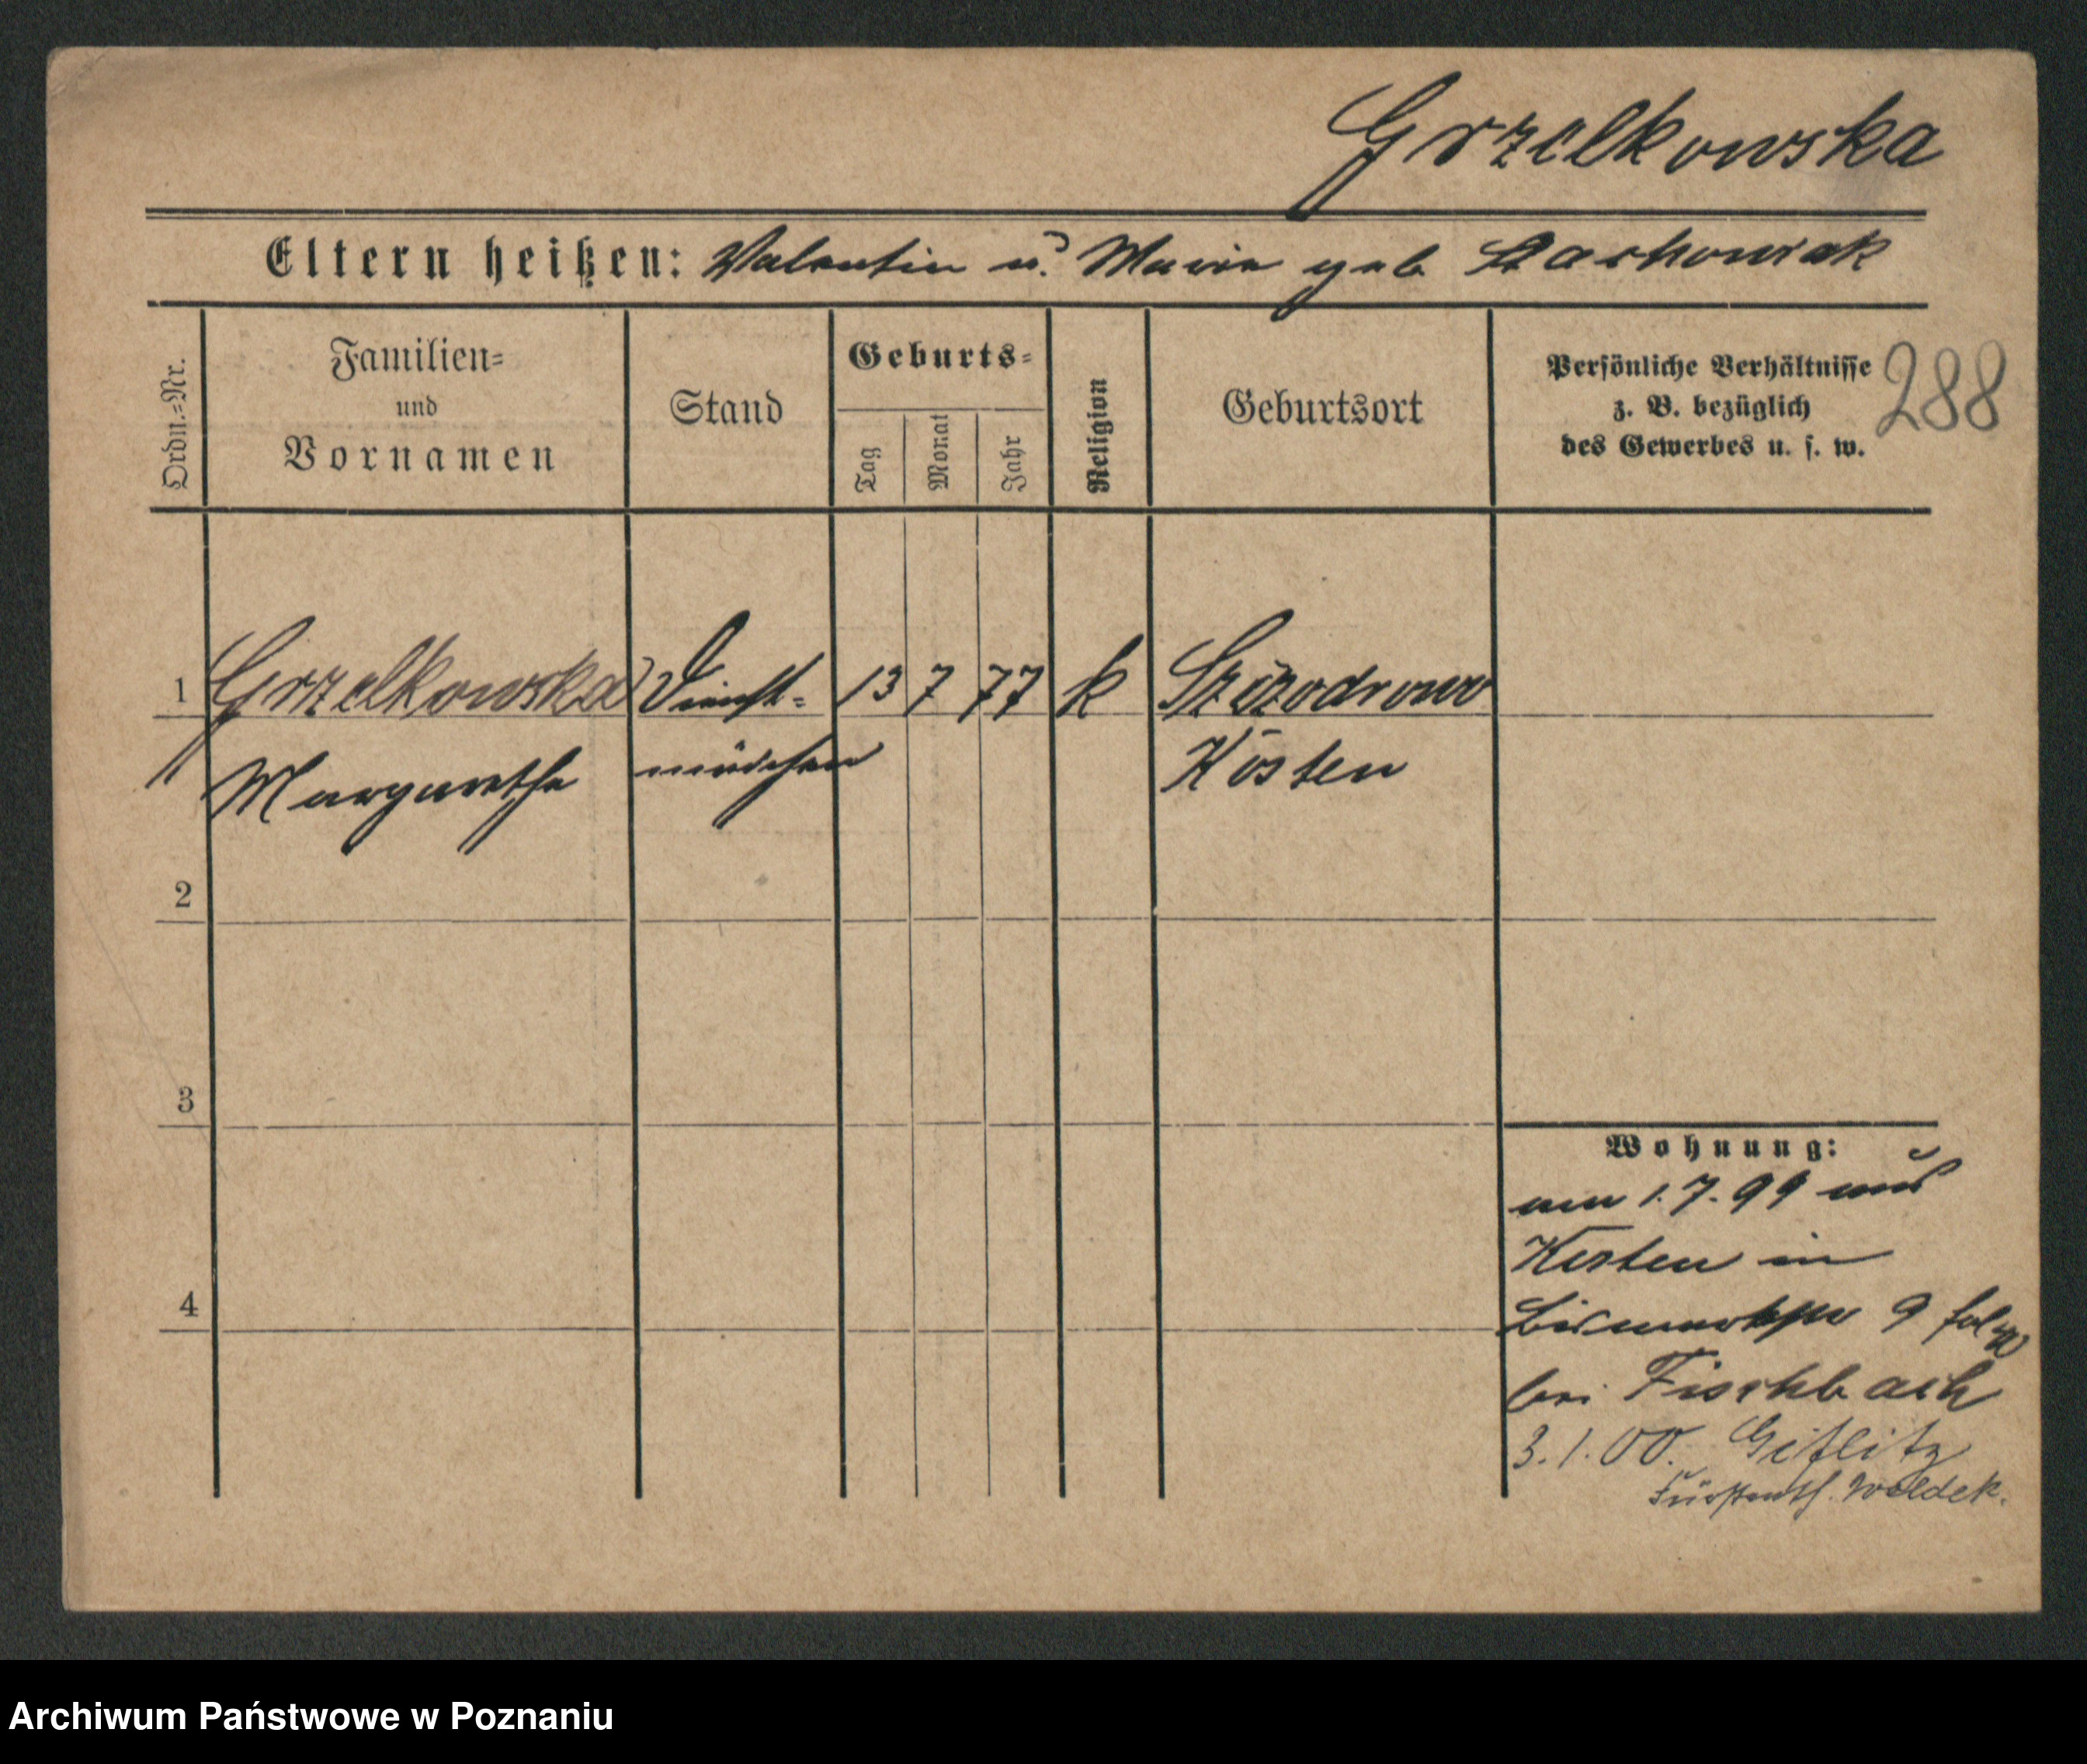 Grzelkowska
Eltern heißen: Valentin u. Maria geb Stachowiak
Ordn.=Nr.
Familien=
und
Vornamen
Stand
Geburts=
Tag
Monat
Jahr
Religion
Geburtsort
Persönliche Verhältnisse
z. B. bezüglich
des Gewerbes u. s. w.
288
1 Grzelkowska Dienst= 13 7 77 k Szczodrowo
Margarethe mädchen Kosten
2
3
4
Wohnung:
am 1.7.99 aus
Kosten in
9
bei Fischbach
3.1.00. Geflitz
Fürstenth. Waldek.
Archiwum Państwowe w Poznaniu